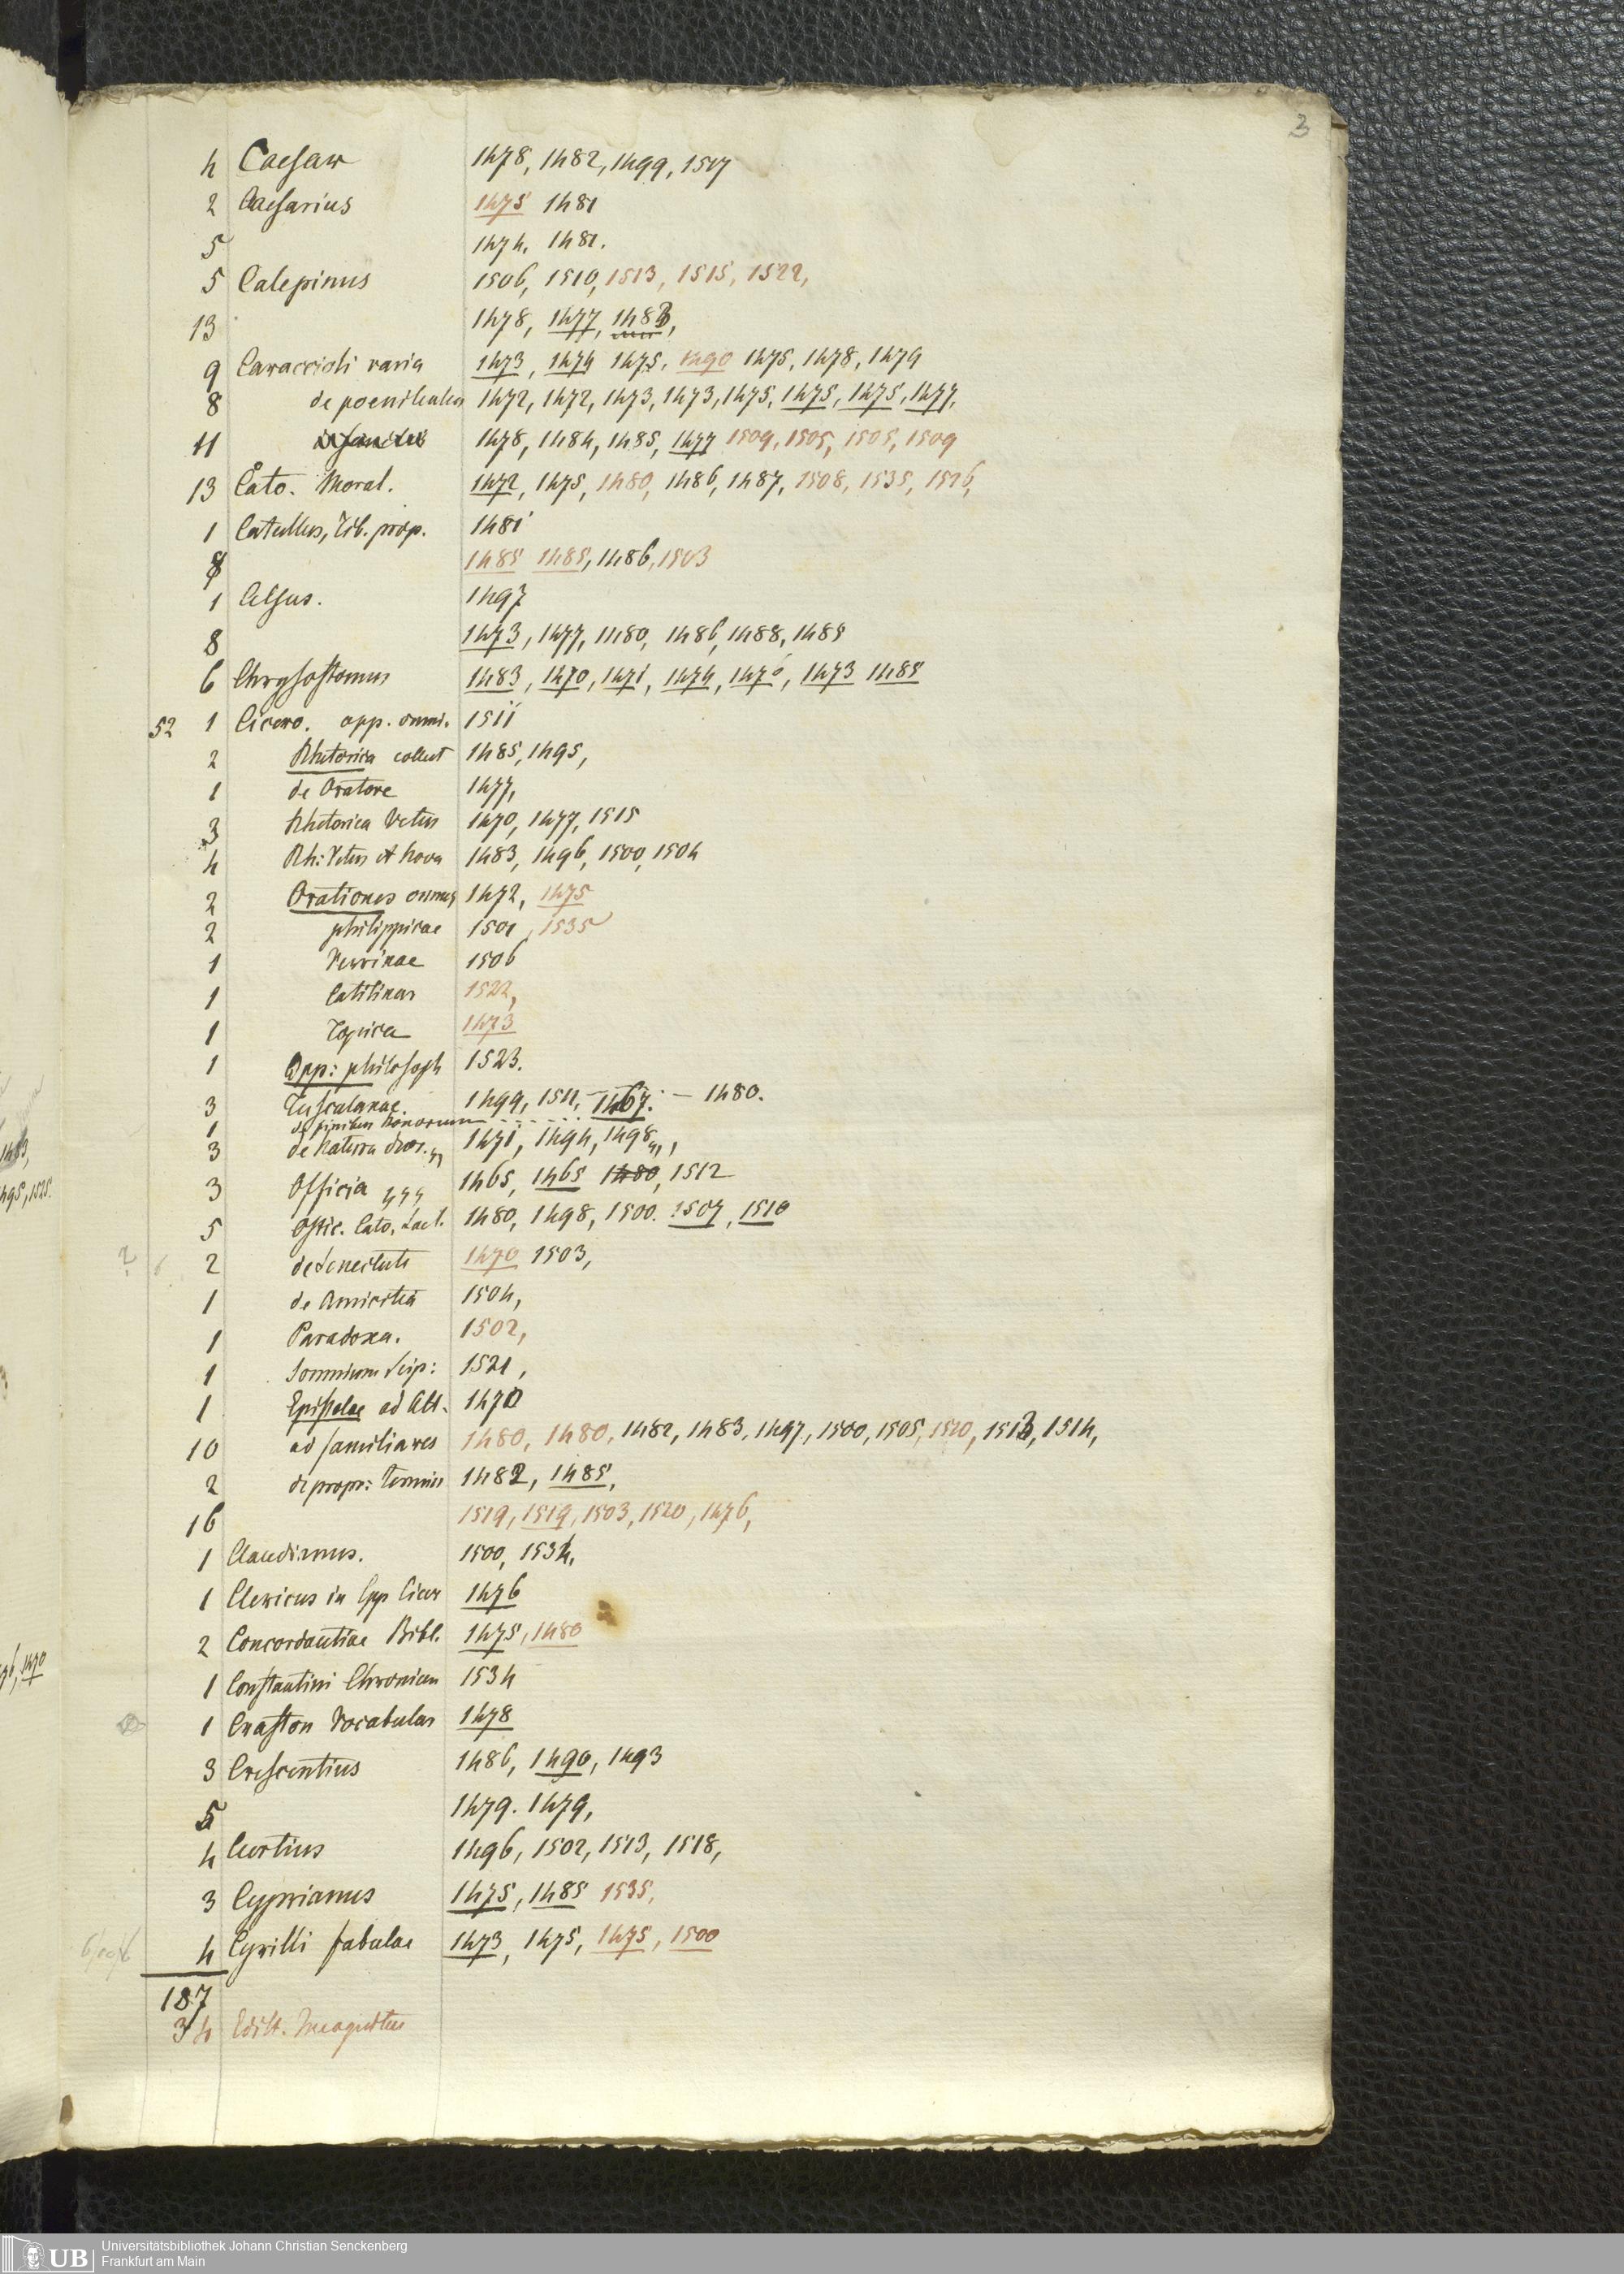 3
4 Caesar 1478, 1482, 1499, 1517
2 Caesarius 1475 1481
5 1474. 1481.
5 Calepinus 1506, 1510, 1513, 1515, 1522,
13 1478, 1477, 1483,
9 Caraccioli varia 1473, 1474 1475, 1490 1475, 1478, 1479
8 de poenitentia 1472, 1472, 1473, 1473, 1475, 1475, 1475, 1477,
11 1478, 1484, 1485, 1477 1509, 1505, 1505, 1509
13 Cato. Moral. 1472, 1475, 1480, 1486, 1487, 1508, 1535, 1516,
1 Catullus, Tib. prop. 1481
8 1485 1485, 1486, 1503
1 Celsus. 1497
8 1473, 1477, 1480, 1486, 1488, 1489
6 Chrysostomus 1483, 1470, 1471, 1474, 1470, 1473 1485
52 1 Cicero. opp. omni. 1511
2 Rhetorica collect 1485, 1495,
1 de Oratore 1477,
3 Rhetorica Vetus 1470, 1477, 1515
4 Rh: Vetus et Nova 1483, 1496, 1500, 1504
2 Orationes omnes 1472, 1475
2 philippicae 1501, 1535
1 Verrinae 1506
1 Catilinar 1522,
1 Topica 1473
1 Opp: philosoph 1523.
3 Tusculanae. 1499, 1511, – 1467. – 1480.
1 de finibus bonorum
3 de Natura deor. 1471, 1494, 1498,
3 Officia 1465, 1465 1480, 1512
5 Offic. Cato, Lael. 1480, 1498, 1500. 1507, 1510
? 2 de Senectute 1470 1503,
1 de Amicitia 1504,
1 Paradoxa. 1502,
1 Somnium Scip: 1521,
1 Epistolae ad Att. 1470
10 ad familiares 1480, 1480, 1482, 1483, 1497, 1500, 1505, 1510, 1513, 1514,
2 de propr: terminis 1482, 1485,
16 1519, 1519, 1503, 1520, 1476,
1 Claudianus. 1500, 1534,
1 Clericus in Epp Cicer 1476
2 Concordantiae Bibl. 1475, 1480
1 Constantini Chronicon 1534
1 Craston Vocabular 1478
3 Crescentius 1486, 1490, 1493
5 1479. 1479,
4 Curtius 1496, 1502, 1513, 1518,
3 Cyprianus 1475, 1485 1535,
4 Cyrilli fabulae 1473, 1475, 1475, 1500
187
34 Editt.
1483,
1495, 1525.
1470
UB Universitätsbibliothek Johann Christian Senckenberg
Frankfurt am Main